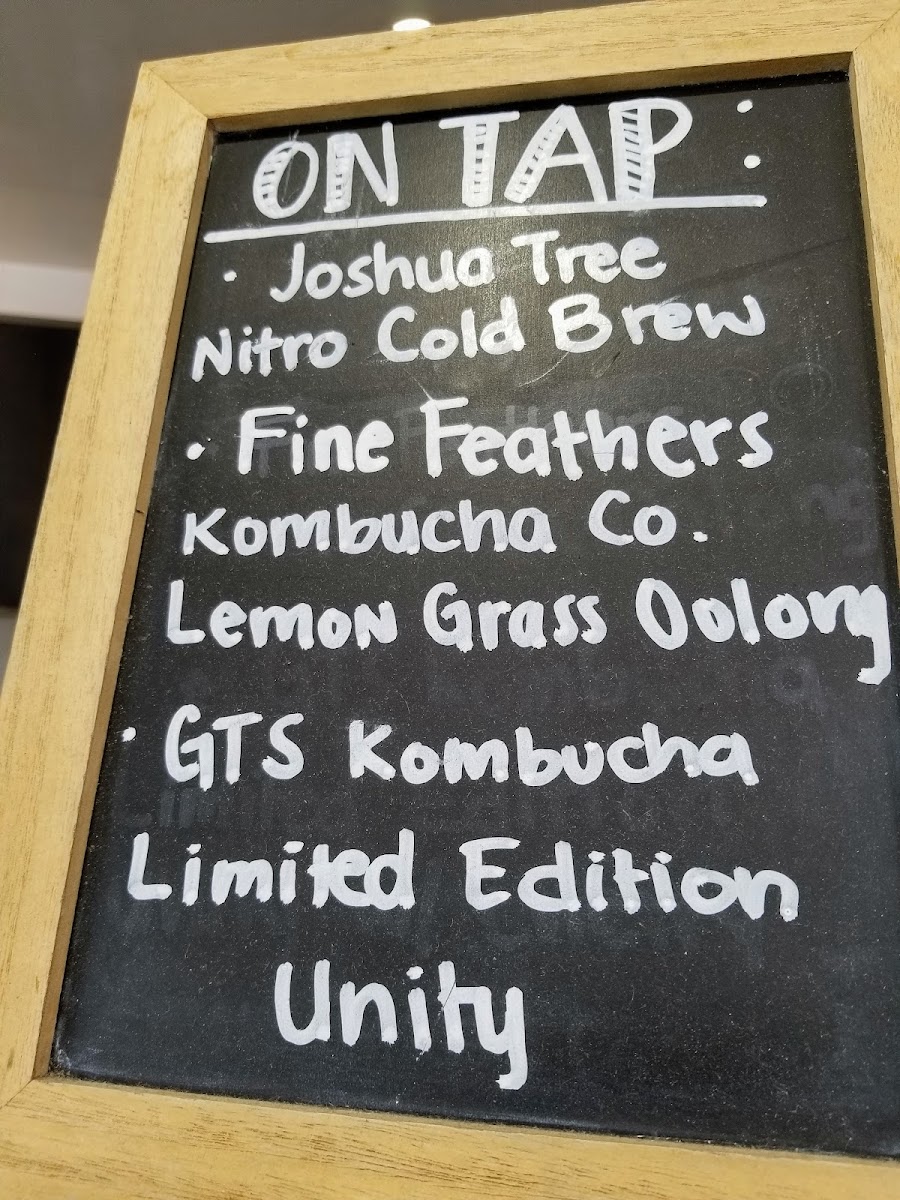 ON TAP:
· Joshua Tree
Nitro Cold Brew
· Fine Feathers
Kombucha Co.
Lemon Grass Oolong
· GTS Kombucha
Limited Edition
Unity